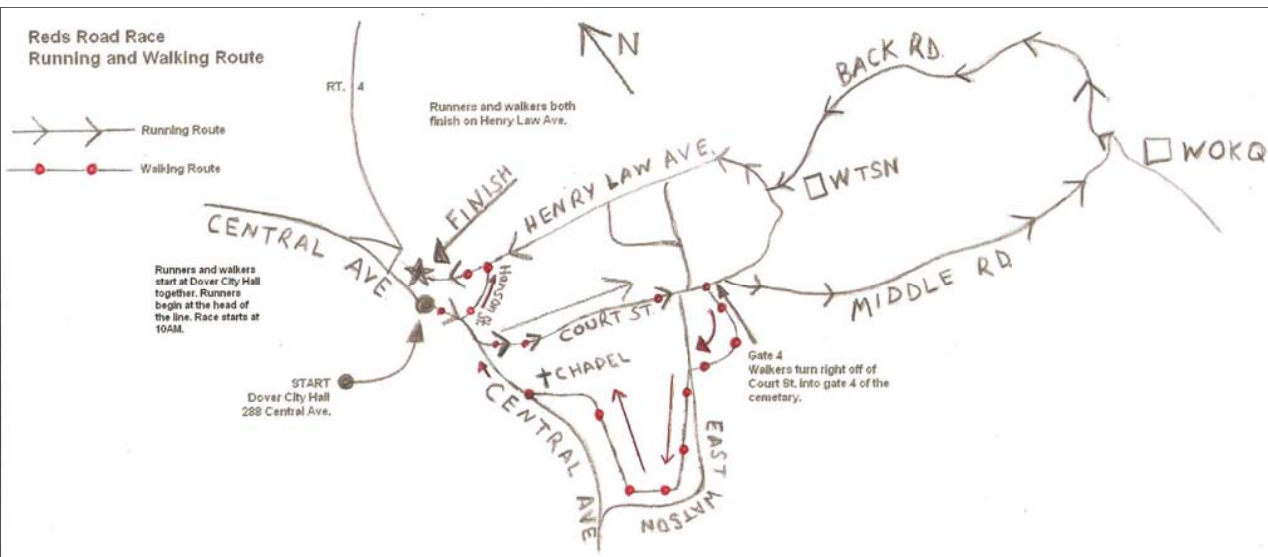 Reds Road Race
Running and Walking Route
Running Route
Walking Route
RT. 4
Runners and walkers both
finish on Henry Law Ave.
N
BACK RD.
WOKQ
WTSN
HENRY LAW AVE.
FINISH
CENTRAL AVE
Runners and walkers
start at Dover City Hall
together. Runners
begin at the head of
the line. Race starts at
10AM.
Hanson St.
COURT ST.
MIDDLE RD.
START
Dover City Hall
288 Central Ave.
CHAPEL
CENTRAL AVE
Gate 4
Walkers turn right off of
Court St. into gate 4 of the
cemetary.
EAST WATSON